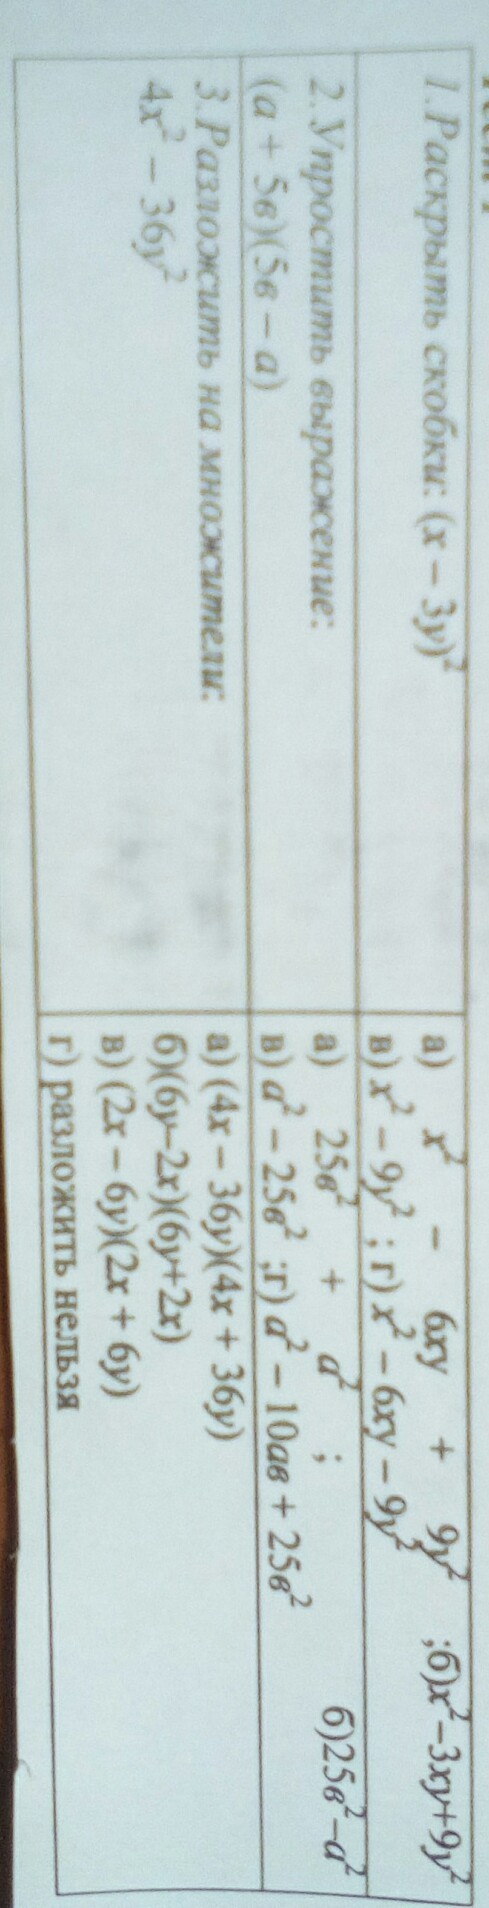 1.Раскрыть скобки: (x – 3y)²
а) x² – 6xy + 9y² ;б)x²–3xy+9y²
в) x² – 9y² ; г) x² – 6xy – 9y²
2.Упростить выражение:
(а + 5в)(5в – а)
а) 25в² + а² ; б)25в²–а²
в) а² – 25в² ;г) а² – 10ав + 25в²
3.Разложить на множители:
4x² – 36y²
а) (4x – 36y)(4x + 36y)
б)(6y–2x)(6y+2x)
в) (2x – 6y)(2x + 6y)
г) разложить нельзя